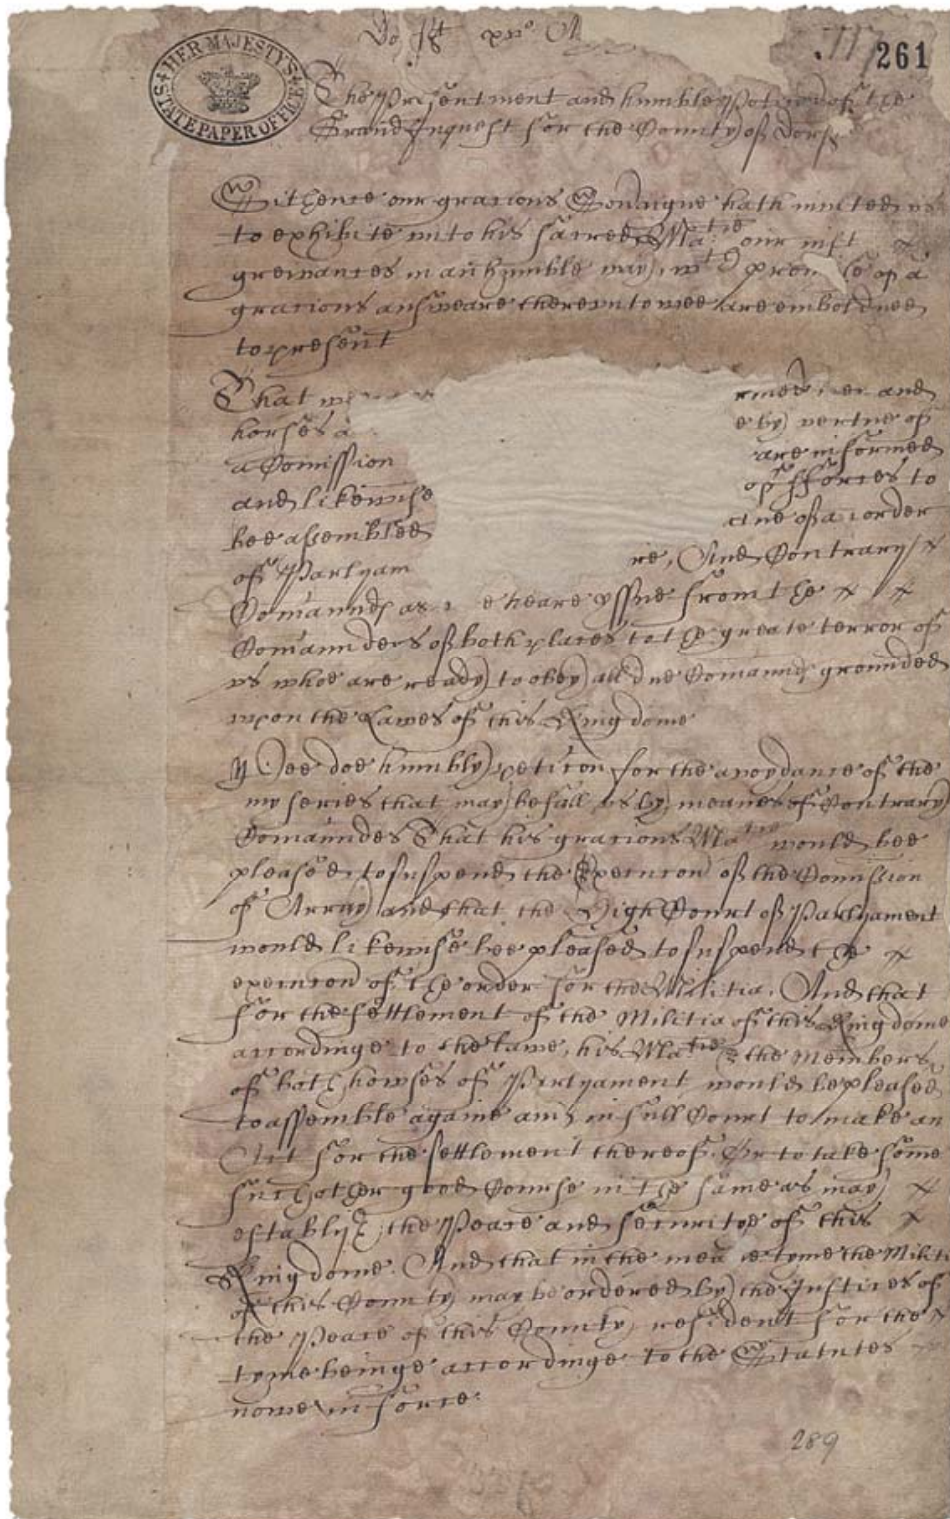 HER MAJESTY'S STATE PAPER OFFICE
261
The Presentment and humble Peticon of the
Grand Inquest for the County of Dors
Sithence our gracious Soveraigne hath invited us
to exhibite unto his sacred Matie our iust
greivances in an humble way, wth of a
gracious answeare thereunto wee are emboldned
to present
That and
horses a e by vertue of
a Comission are informed
and likewise of fforces to
bee assembled of a order
of Parlyam re, And Contrary
Comaunds as e heare yssue from the
Comaunders of both places to the greate terror of
us whoe are ready to obey all due Comaunds grounded
upon the Lawes of this Kingdome
Wee doe humbly peticon for the avoydance of the
myseries that may befall us by meanes of Contrary
Comaundes That his gracious Matie would bee
pleased to suspend the Execucon of the Comission
of Array and that the High Court of Parlyament
would likewise bee pleased to suspend the
execucon of the order for the Militia. And that
for the settlement of the Militia of this Kingdome
accordinge to the lawe, his Matie & the Members
of both howses of Parlyament would be pleased
to assemble againe in full Court to make an
Act for the settlement thereof. Or to take some
such other good Course in the same as may
establish the Peace and securitye of this
Kingdome. And that in the meane tyme the Militi
of this County may be ordered by the Justices of
the Peace of this County resident for the
tyme beinge accordinge to the Statutes
nowe in force.
289